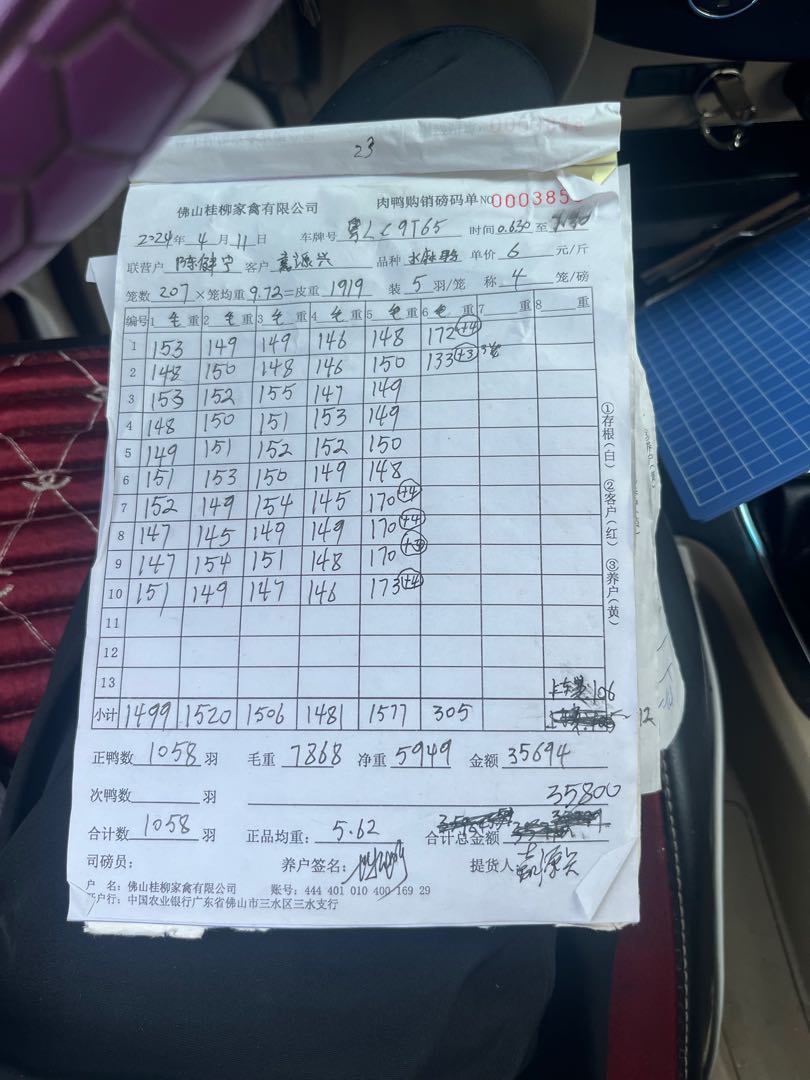 23
佛山桂柳家禽有限公司 肉鸭购销磅码单 NO 000385
2024年 4月 11日 车牌号 粤LC9T65 时间 0.630 至
联营户 客户 袁源兴 品种 单价 6 元/斤
笼数 207 ×笼均重 9.72=皮重 1919 装 5 羽/笼 称 4 笼/磅
编号 1 毛 重 2 毛 重 3 毛 重 4 毛 重 5 毛 重 6 毛 重 7 重 8 重
1 153 149 149 146 148 172 +4
2 148 150 148 146 150 133 +3 3笼
3 153 152 155 147 149
4 148 150 151 153 149
5 149 151 152 152 150
6 151 153 150 149 148
7 152 149 154 145 170 +4
8 147 145 149 149 170 +4
9 147 154 151 148 170 +3
10 151 149 147 146 173 +4
11
12
13
106
小计 1499 1520 1506 1481 1577 305
12
正鸭数 1058 羽 毛重 7868 净重 5949 金额 35694
次鸭数 羽 35800
合计数 1058 羽 正品均重: 5.62 合计总金额
司磅员: 养户签名: 提货人 袁源兴
户 名: 佛山桂柳家禽有限公司 账号: 444 401 010 400 169 29
开户行: 中国农业银行广东省佛山市三水区三水支行
①存根(白) ②客户(红) ③养户(黄)